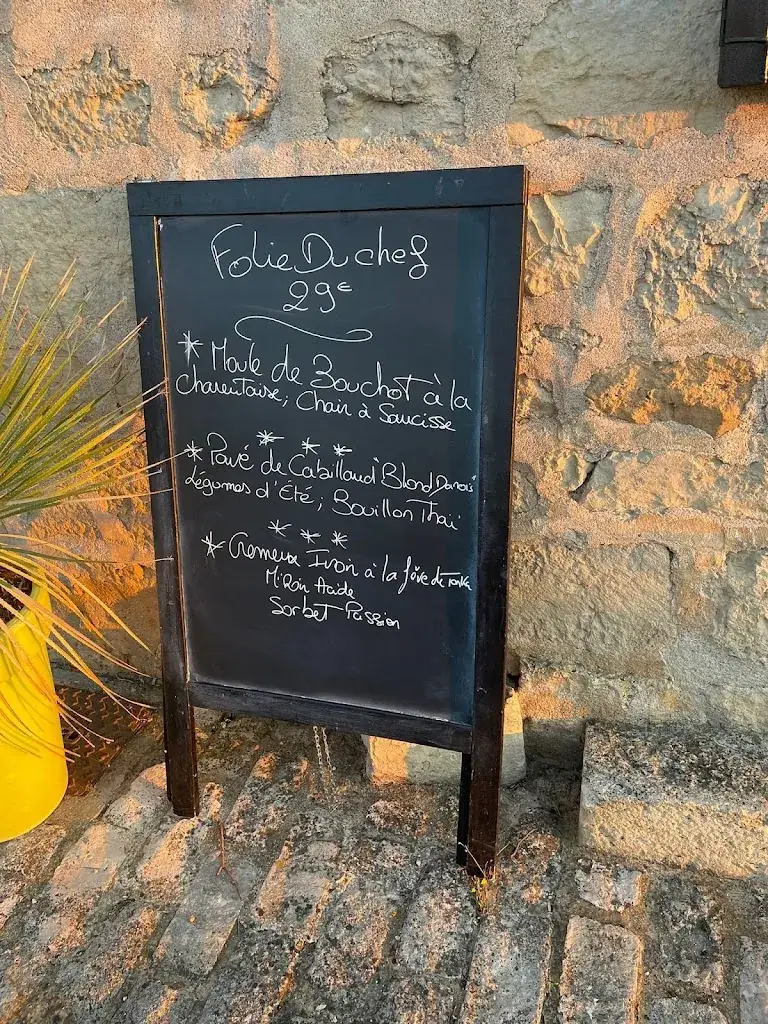 Folie Du chef
29€
* Moule de Bouchot à la
Charentaise, Chair à Saucisse
* * *
* Pavé de Cabillaud "Blond
Légumes d'Été, Bouillon Thaï
* * *
* Cremeux Ivori à la fève de Tonka
Sorbet Passion